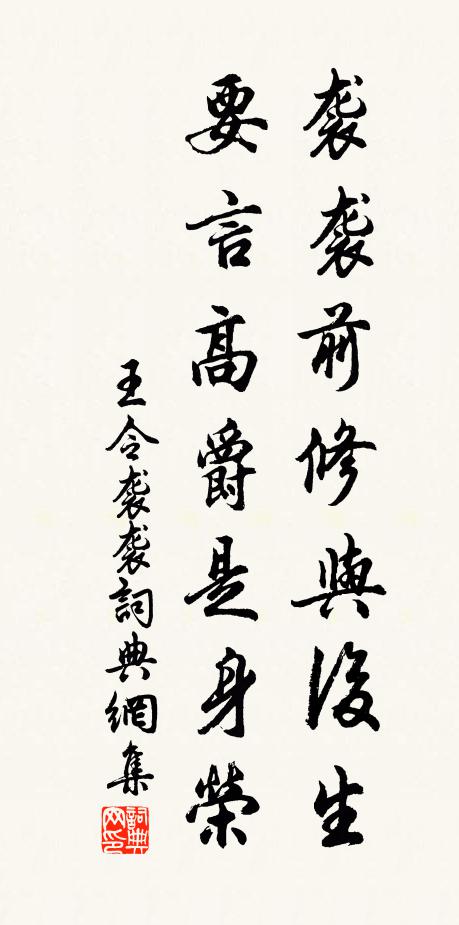 袭袭前修與後生
要言高爵是身榮
王令袭袭詞典網集
詞典網印